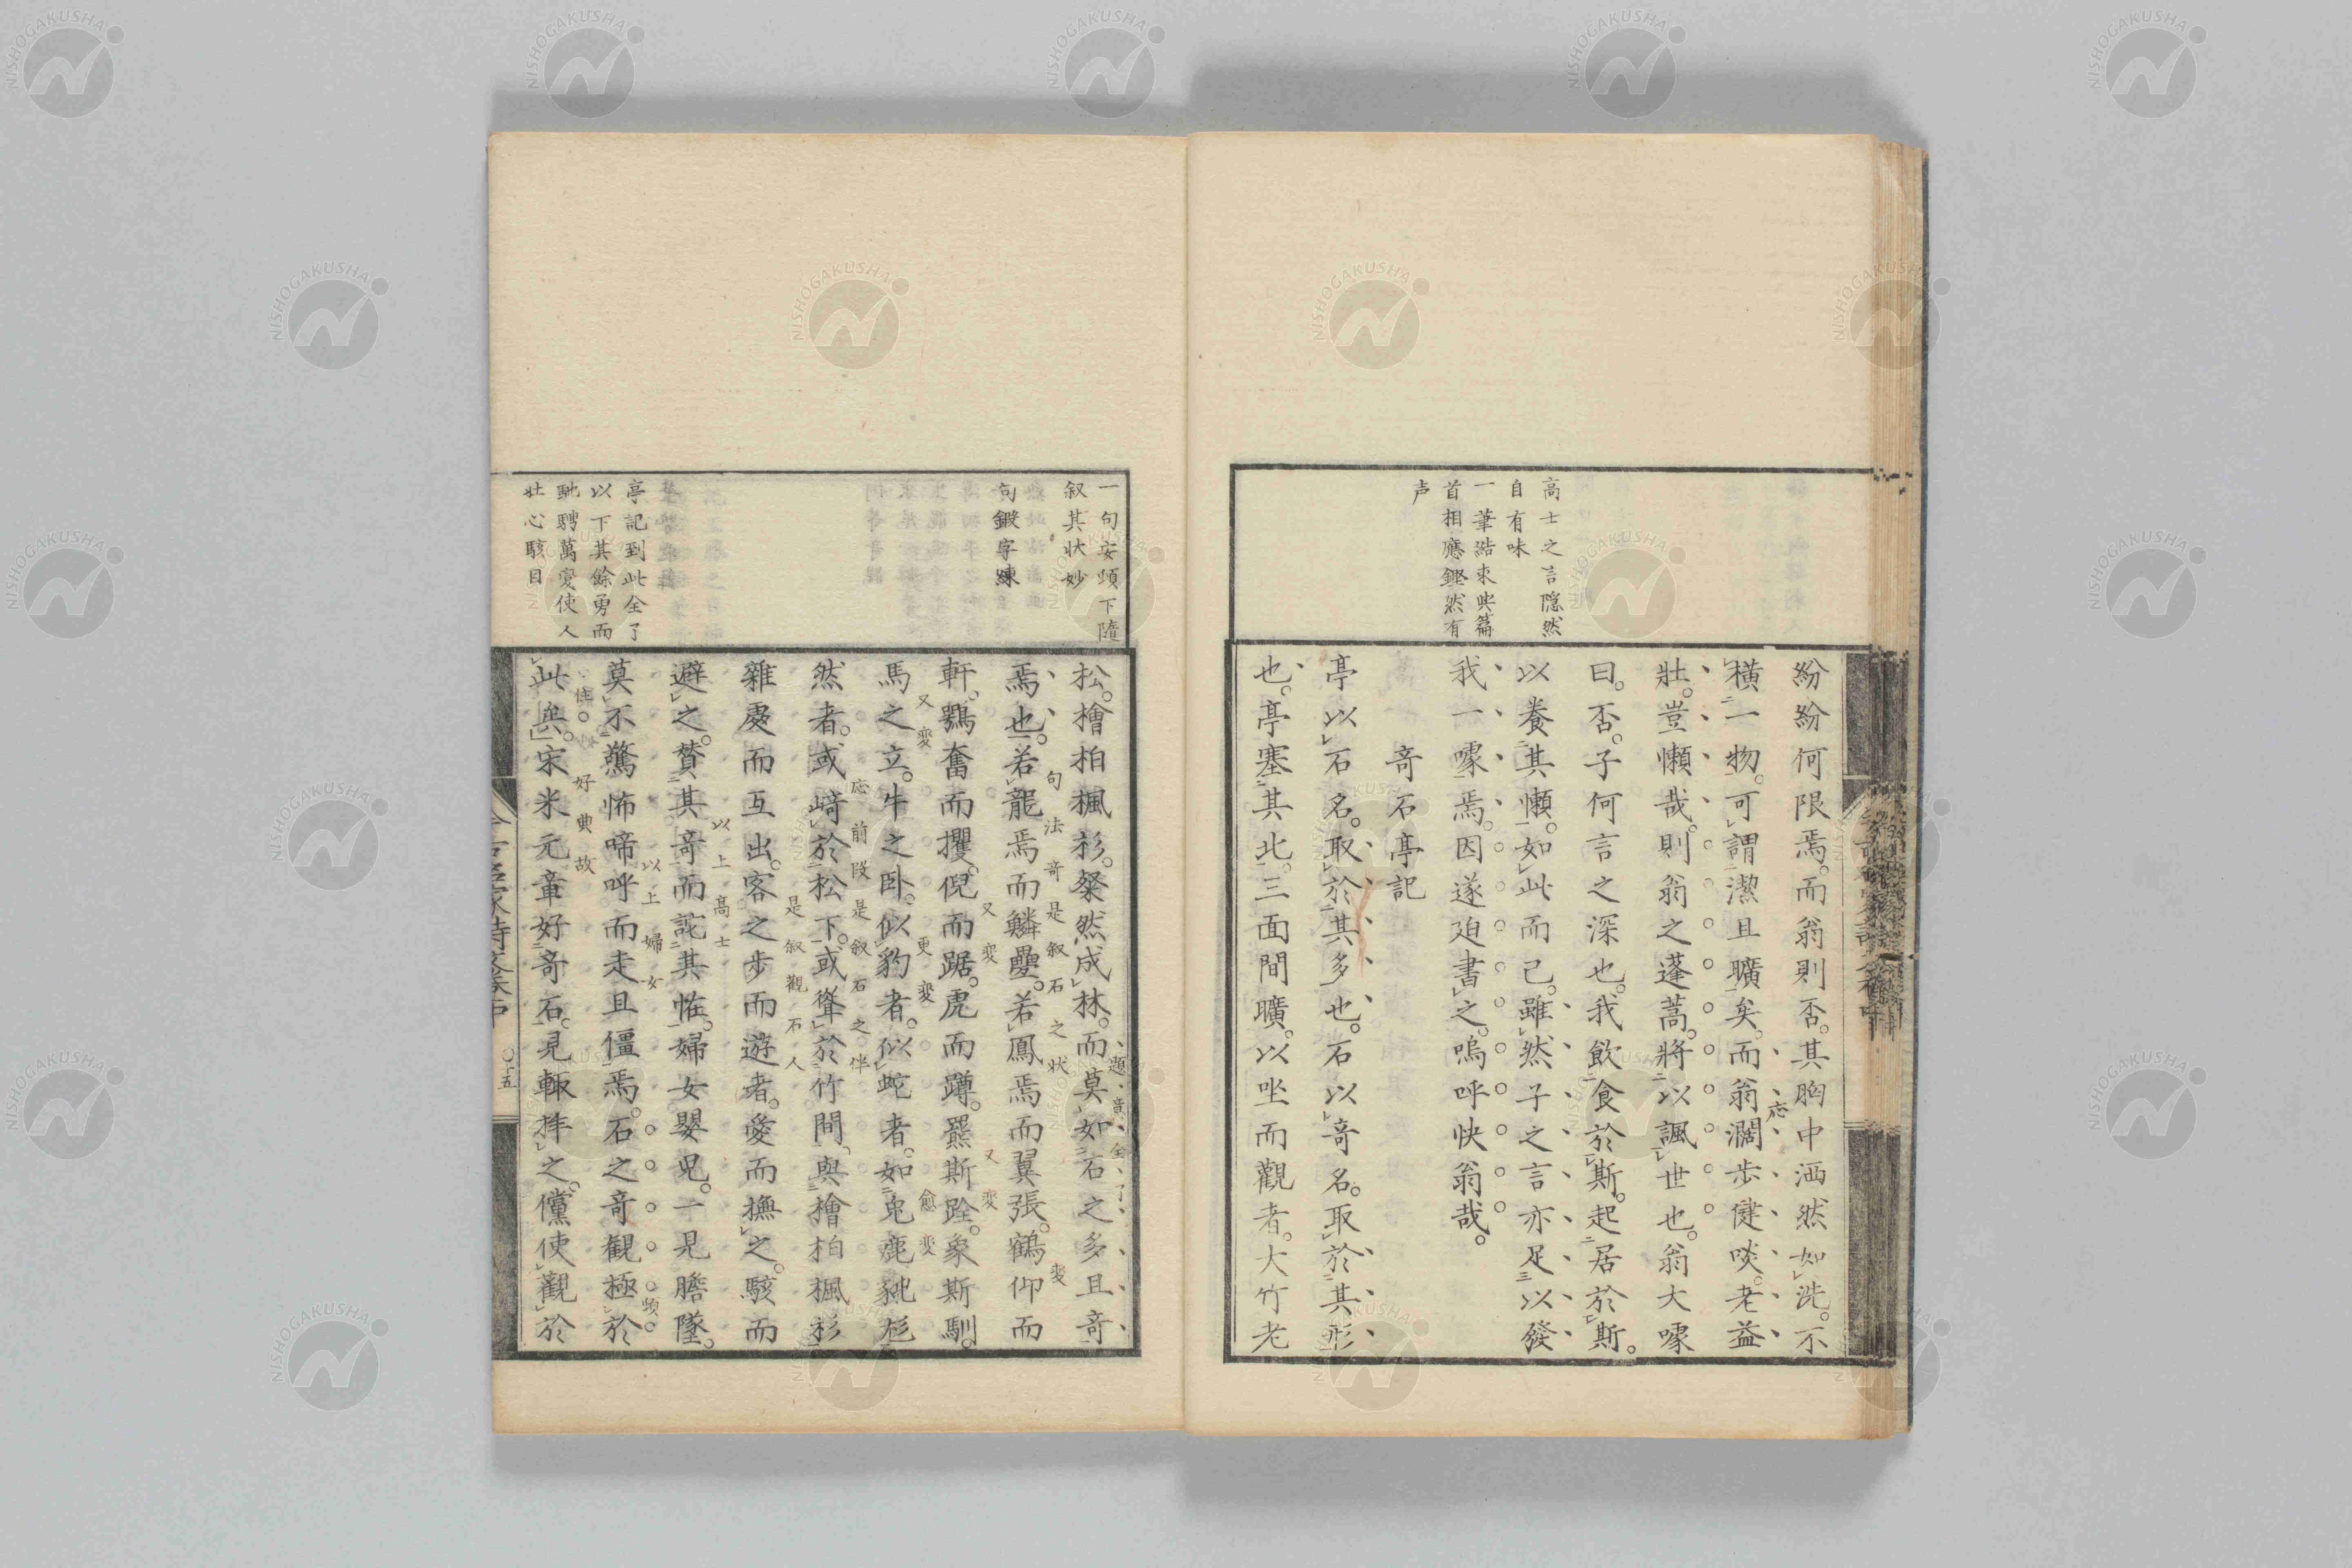 高士之言隠然
自有味
一筆結束與篇
首相應鏗然有
声
紛紛何限焉。而翁則否。其胸中洒然如洗。不
橫一物。可謂潔且曠矣。而翁濶歩健啖。老益
応
壯。豈懶哉。則翁之蓬蒿。將以諷世也。翁大噱
曰。否。子何言之深也。我飲食於斯。起居於斯。
以養其懶。如此而已。雖然子之言亦足以發
我一噱焉。因遂廹書之。嗚呼快翁哉。
竒石亭記
亭以石名。取於其多也。石以竒名。取於其形
也。亭塞其北。三面間曠。以坐而觀者。大竹老
一句安頭下隨
叙其状妙
句鍛字錬
亭記到此全了
以下其餘勇而
馳騁萬変使人
壮心駭目
松。檜柏楓杉。粲然成林。而莫如石之多且竒
題意全了
焉也。若龍焉而鱗疊。若鳳焉而翼張。鶴仰而
句法竒是叙石之状
変
軒。鶚奮而攫。倪而踞。虎而蹲。羆斯跧。象斯馴。
又変
又変
馬之立。牛之卧。似豹者。似蛇者。如兎鹿豼彪
又変
更変
愈変
然者。或﨑於松下。或聳於竹間。與檜柏楓杉
応前段是叙石之伴
雜處而互出。客之歩而遊者。愛而撫之。駭而
是叙觀石人
避之。賛其竒而詫其恠。婦女嬰児。一見膽墜。
以上高士
莫不驚怖啼呼而走且僵焉。石之竒観極於
以上婦女
頓
此矣。宋米元章好竒石。見輙拝之。儻使觀於
好典故
〇十五